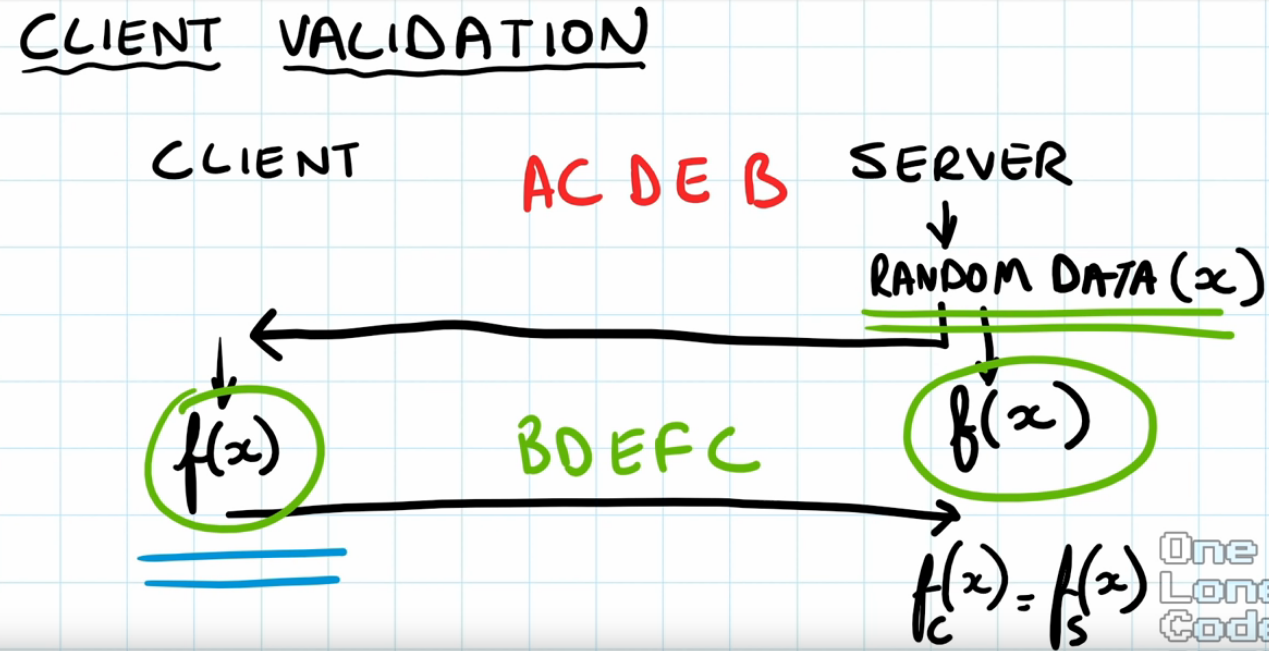 CLIENT VALIDATION
CLIENT
ACDEB
SERVER
RANDOM DATA (x)
f(x)
BDEFC
f(x)
f_C(x) = f_S(x)
One
Lone
Code